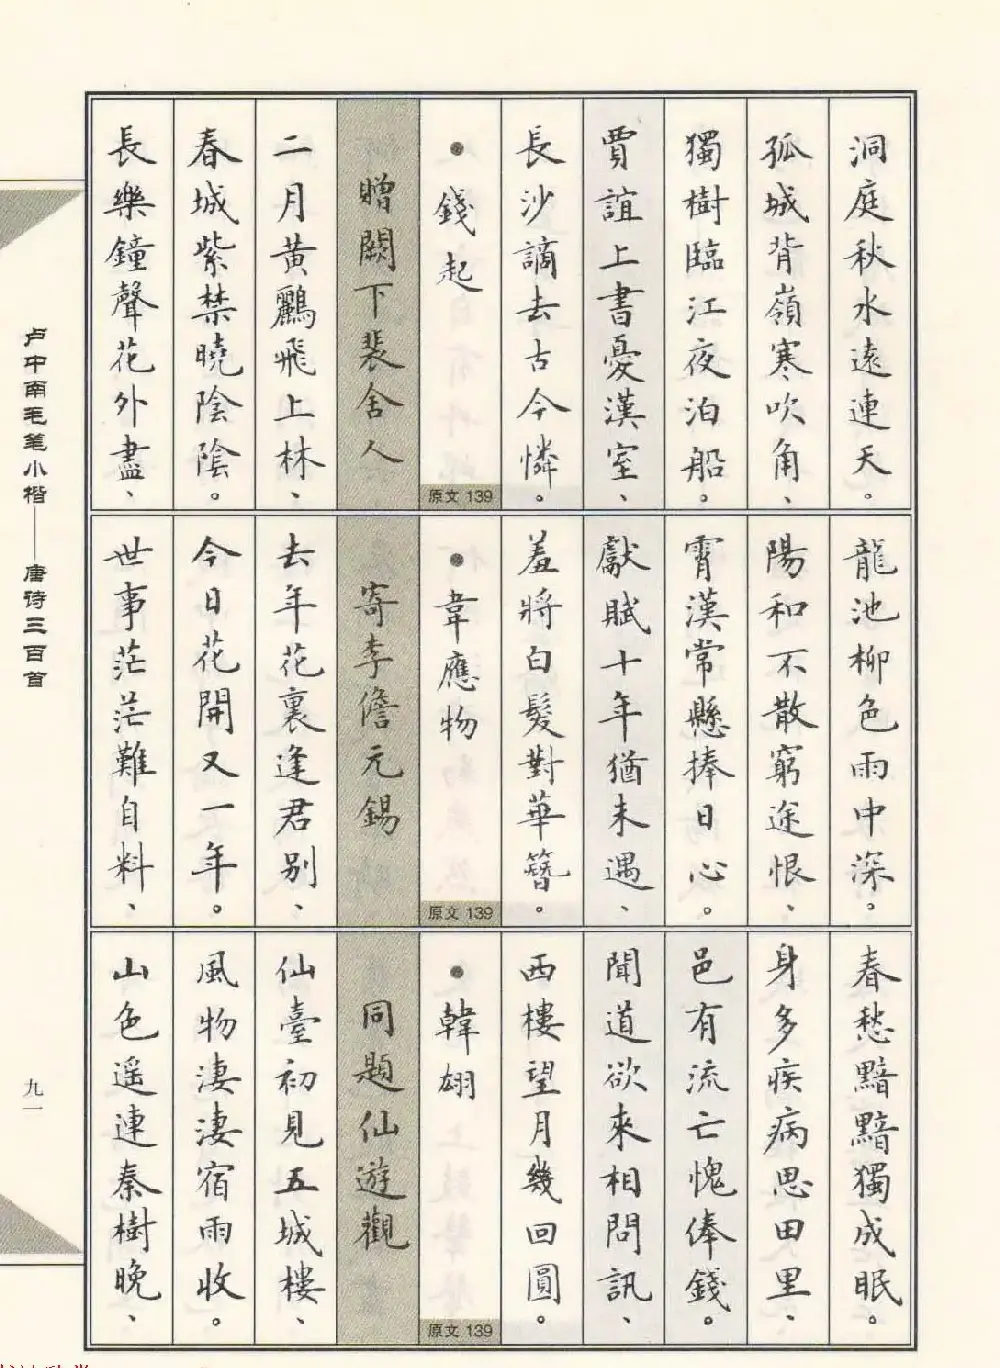 洞庭秋水遠連天。
孤城背嶺寒吹角、
獨樹臨江夜泊船。
賈誼上書憂漢室、
長沙謫去古今憐。
●錢起
原文 139
贈闕下裴舍人
二月黃鸝飛上林、
春城紫禁曉陰陰。
長樂鐘聲花外盡、
龍池柳色雨中深。
陽和不散窮途恨、
霄漢常懸捧日心。
獻賦十年猶未遇、
羞將白髮對華簪。
●韋應物
原文 139
寄李儋元錫
去年花裏逢君別、
今日花開又一年。
世事茫茫難自料、
春愁黯黯獨成眠。
身多疾病思田里、
邑有流亡愧俸錢。
聞道欲來相問訊、
西樓望月幾回圓。
●韓翃
原文 139
同題仙遊觀
仙臺初見五城樓、
風物淒淒宿雨收。
山色遥連秦樹晚、
卢中南毛笔小楷——唐诗三百首
九一